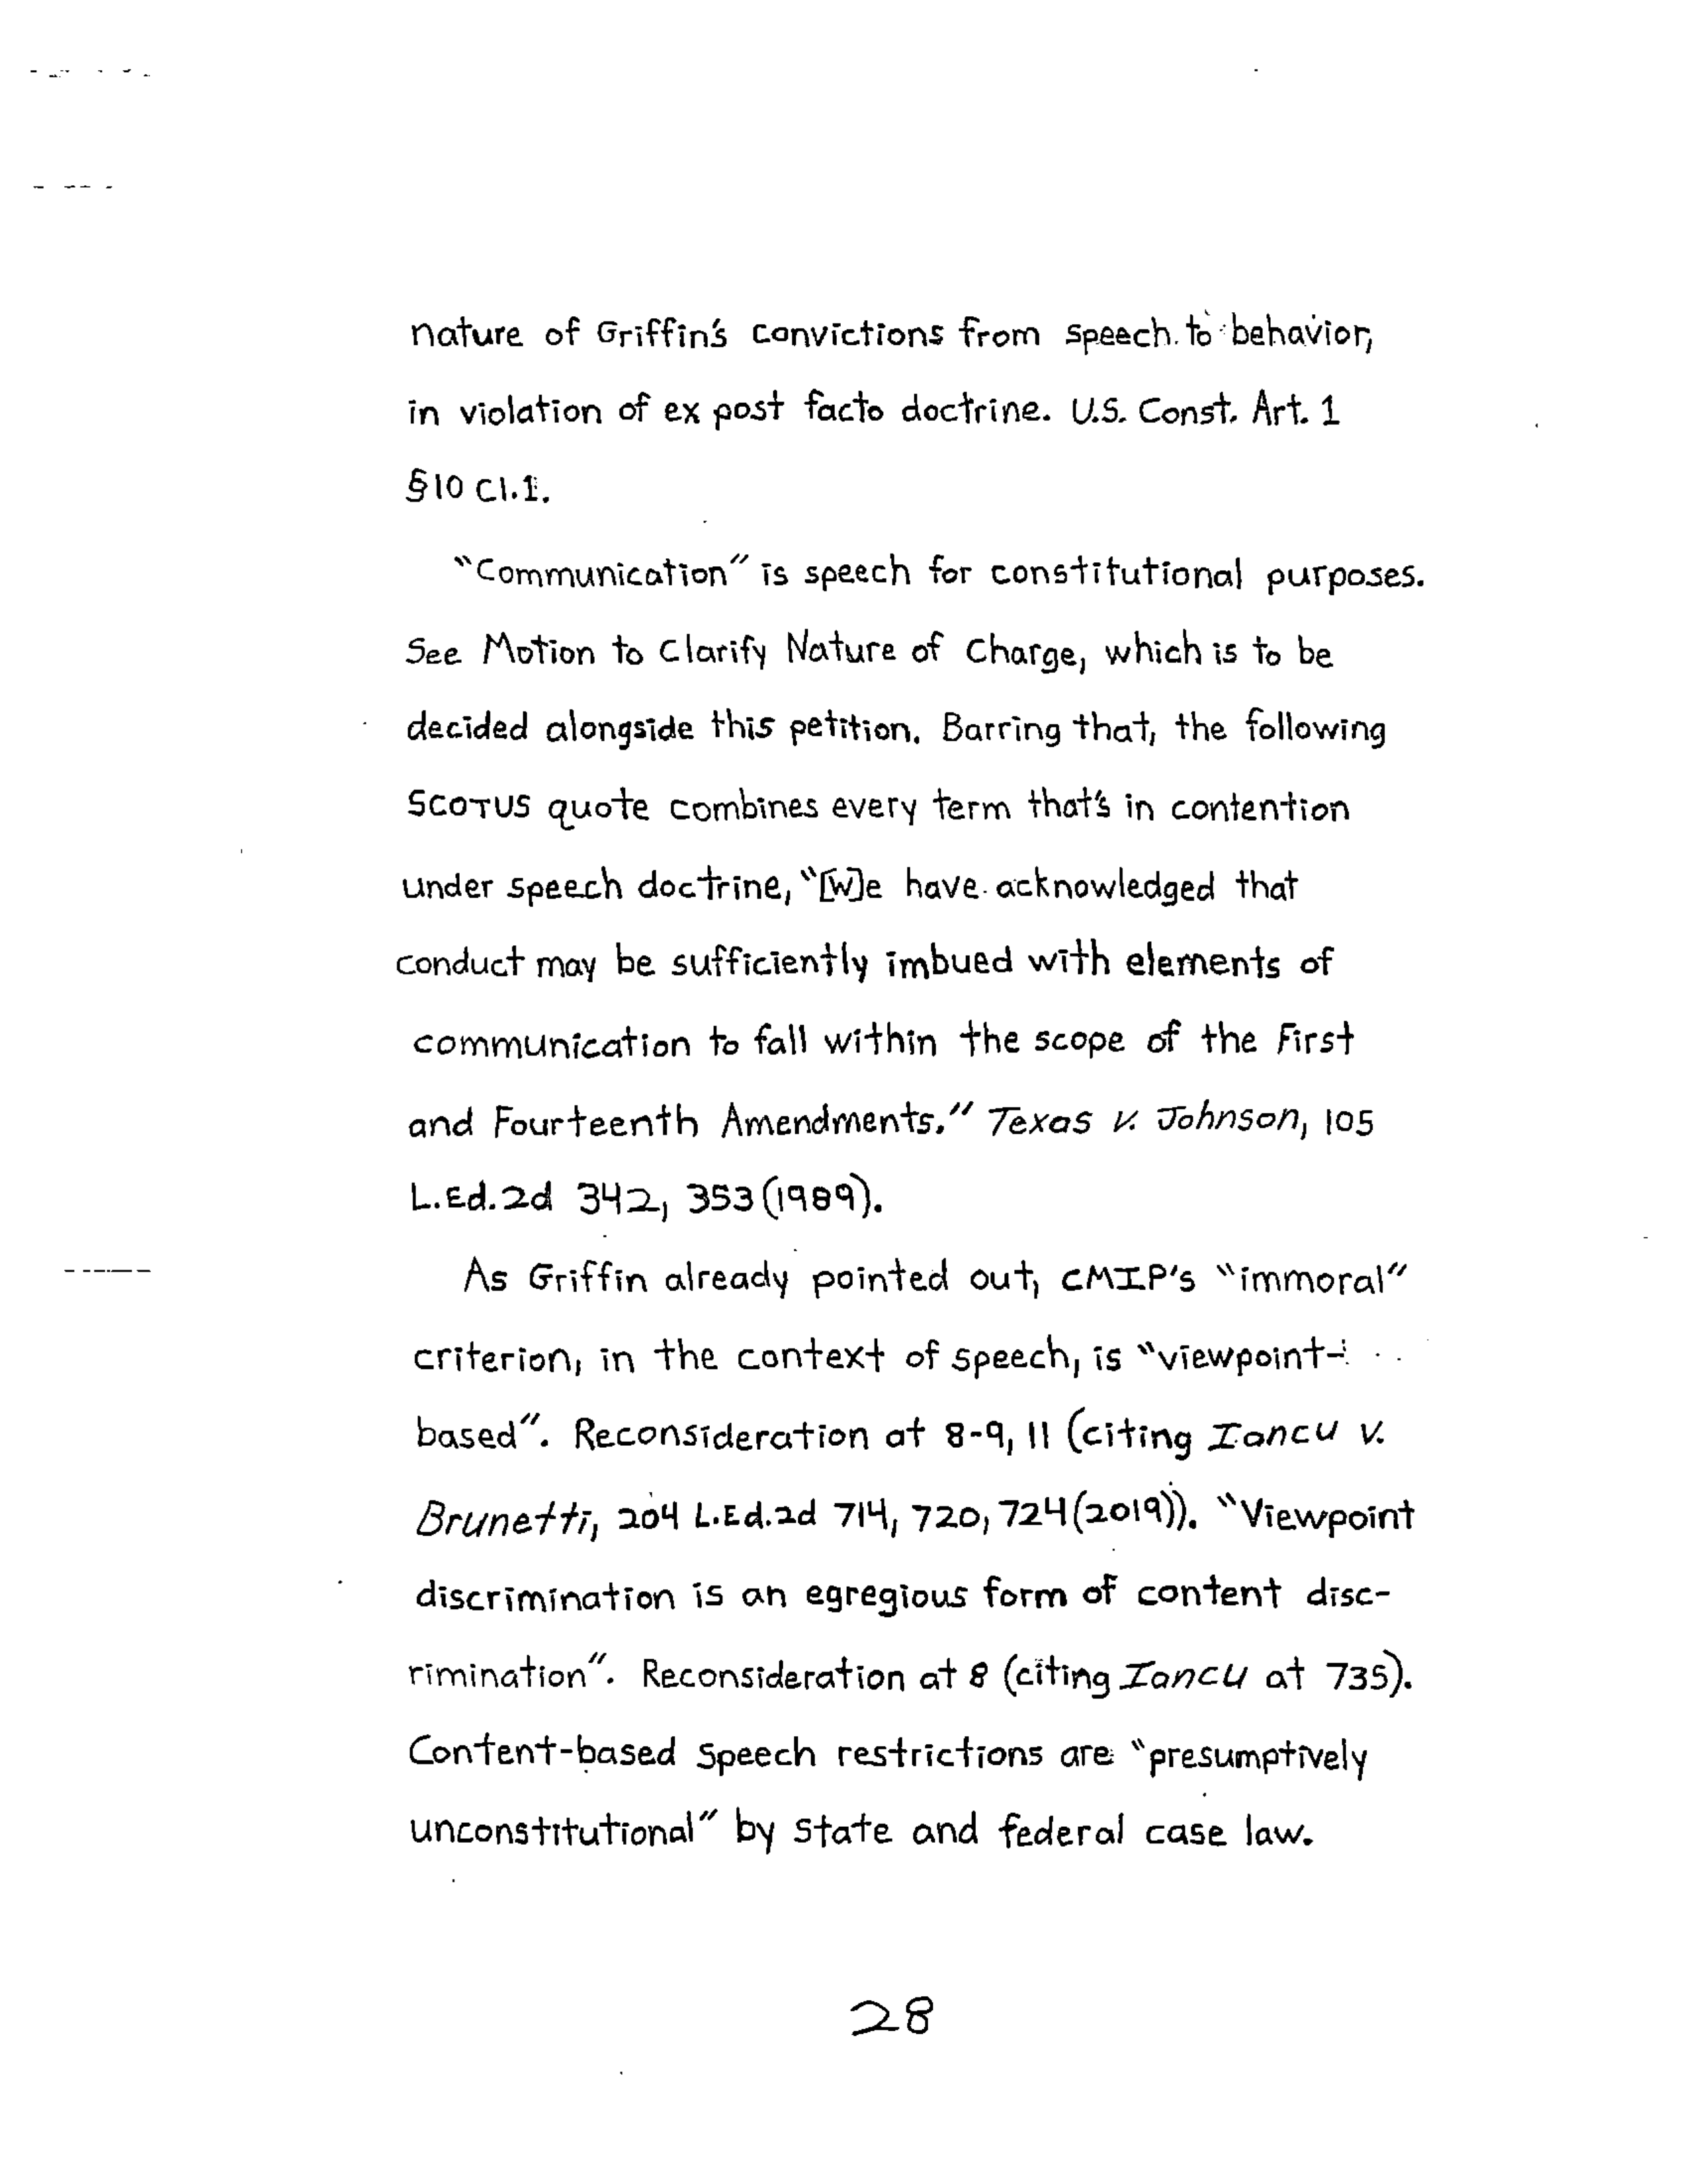 nature of Griffin's convictions from speech to behavior,
in violation of ex post facto doctrine. U.S. Const. Art. 1
§10 Cl.1.
"Communication" is speech for constitutional purposes.
See Motion to Clarify Nature of Charge, which is to be
decided alongside this petition. Barring that, the following
SCOTUS quote combines every term that's in contention
under speech doctrine, "[W]e have acknowledged that
conduct may be sufficiently imbued with elements of
communication to fall within the scope of the First
and Fourteenth Amendments." Texas v. Johnson, 105
L.Ed.2d 342, 353 (1989).
As Griffin already pointed out, CMIP's "immoral"
criterion, in the context of speech, is "viewpoint-
based". Reconsideration at 8-9, 11 (citing Iancu v.
Brunetti, 204 L.Ed.2d 714, 720, 724 (2019)). "Viewpoint
discrimination is an egregious form of content disc-
rimination". Reconsideration at 8 (citing Iancu at 735).
Content-based speech restrictions are "presumptively
unconstitutional" by state and federal case law.
28